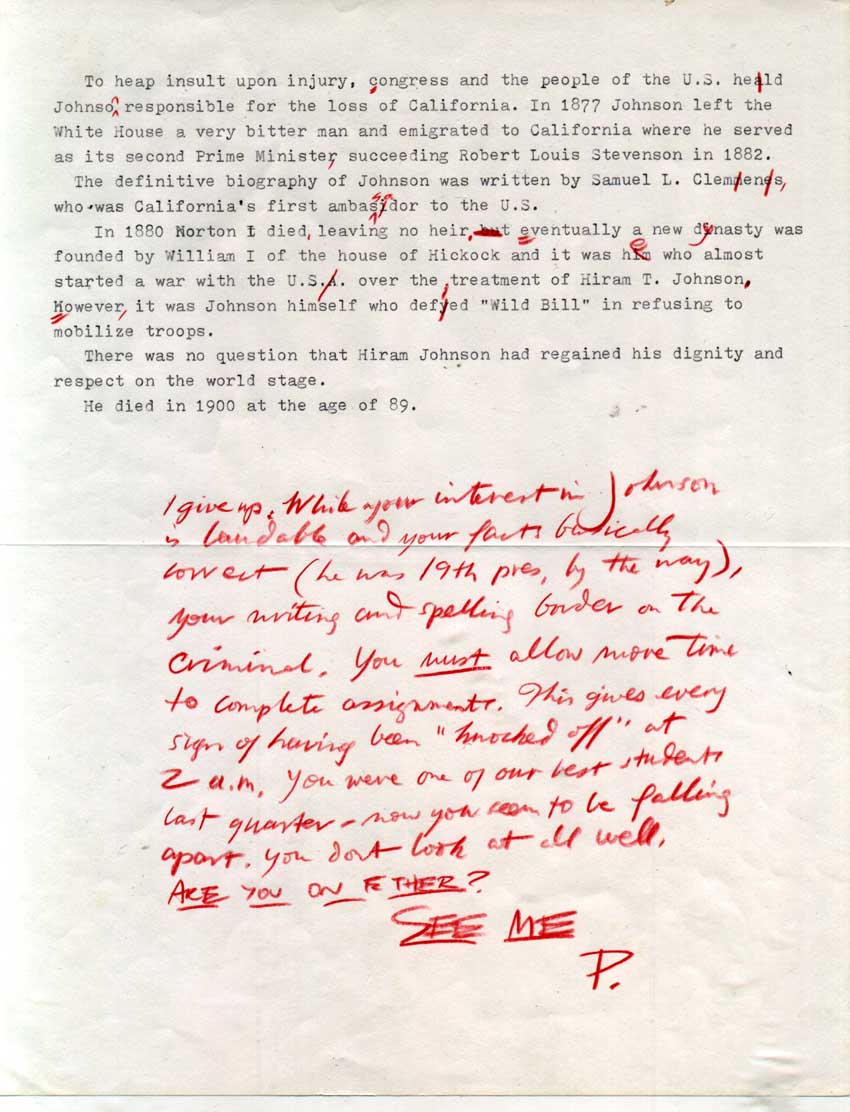 To heap insult upon injury, congress and the people of the U.S. heald
Johnso responsible for the loss of California. In 1877 Johnson left the
White House a very bitter man and emigrated to California where he served
as its second Prime Minister, succeeding Robert Louis Stevenson in 1882.
The definitive biography of Johnson was written by Samuel L. Clemmenes,
who was California's first ambasidor to the U.S.
In 1880 Norton I died, leaving no heir, but eventually a new dynasty was
founded by William I of the house of Hickock and it was him who almost
started a war with the U.S.A. over the treatment of Hiram T. Johnson.
However, it was Johnson himself who defyed "Wild Bill" in refusing to
mobilize troops.
There was no question that Hiram Johnson had regained his dignity and
respect on the world stage.
He died in 1900 at the age of 89.
I give up. While your interest in Johnson
is laudable and your facts basically
correct (he was 19th pres, by the way),
your writing and spelling border on the
criminal. You must allow more time
to complete assignments. This gives every
sign of having been "knocked off" at
2 a.m. You were one of our best students
last quarter - now you seem to be falling
apart. You dont look at all well.
ARE YOU ON ETHER?
SEE ME
P.